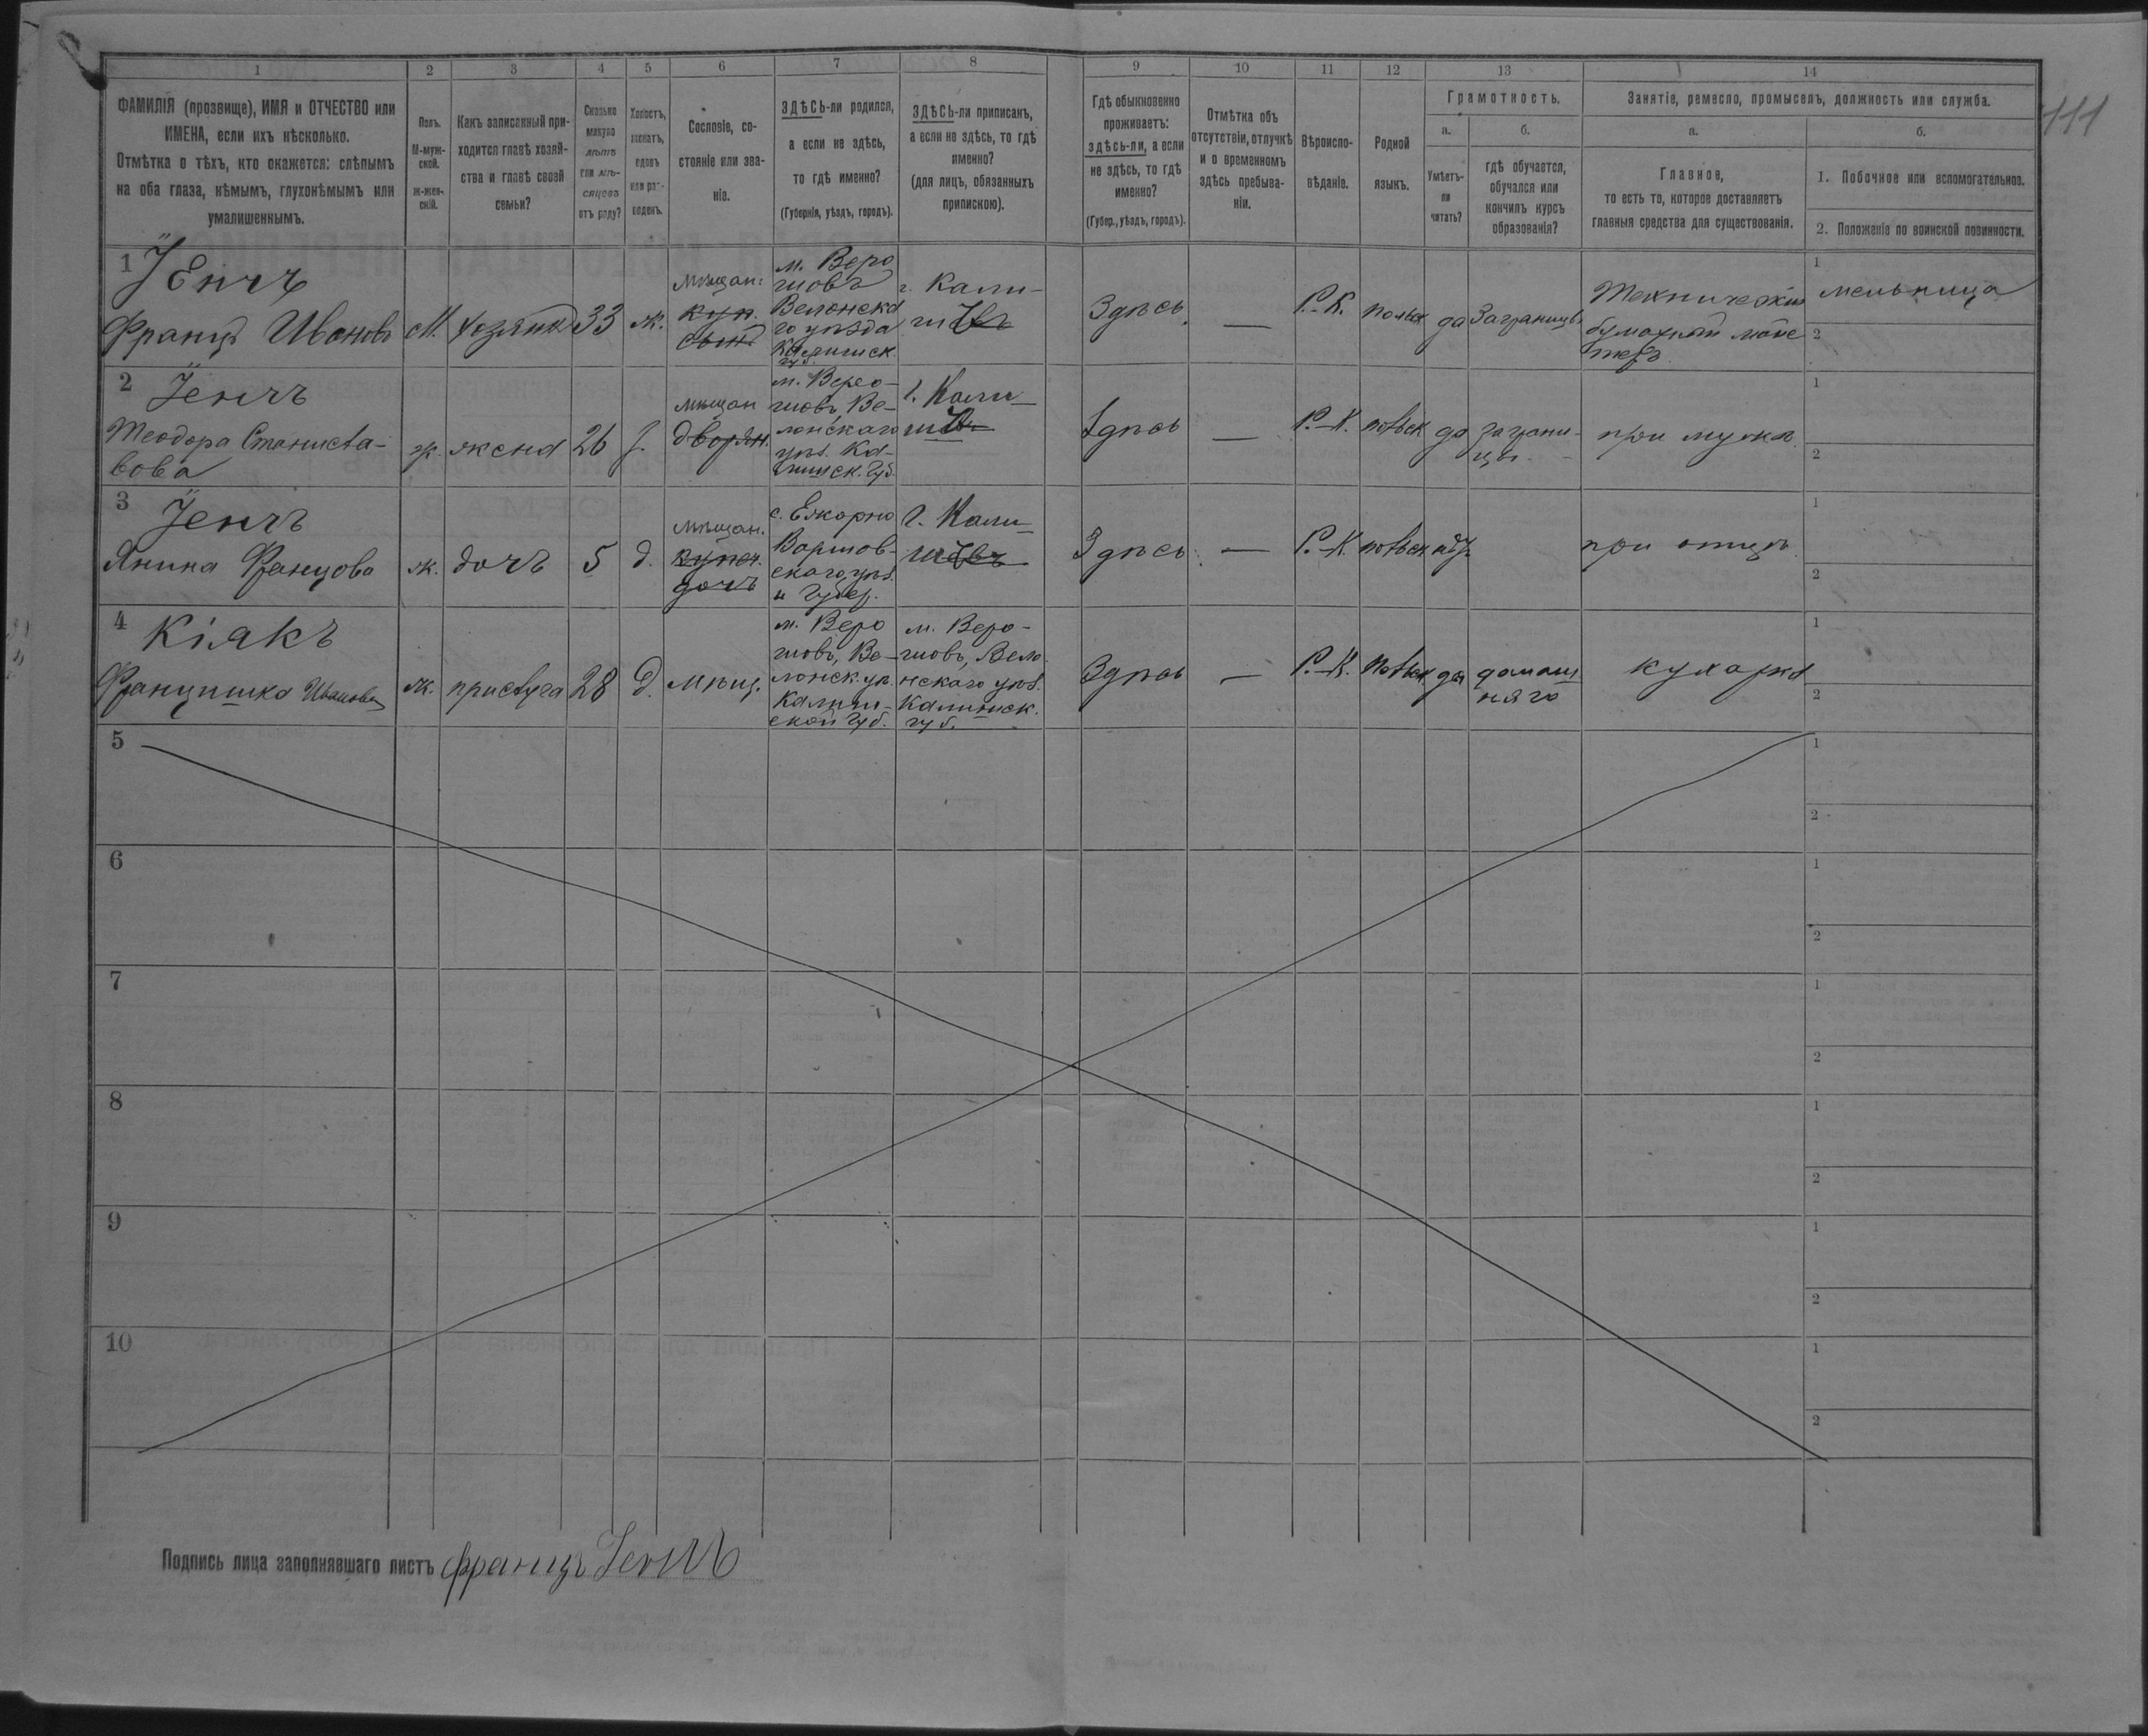 1 2 3 4 5 6 7 8 9 10 11 12 13 14
111
ФАМИЛІЯ (прозвище), ИМЯ и ОТЧЕСТВО или
ИМЕНА, если ихъ нѣсколько.
Отмѣтка о тѣхъ, кто окажется: слѣпымъ
на оба глаза, нѣмымъ, глухонѣмымъ или
умалишеннымъ.
Полъ.
М-муж-
ской.
ж-жен-
скій.
Какъ записанный при-
ходится главѣ хозяй-
ства и главѣ своей
семьи?
Сколько
минуло
лѣтъ
или мѣ-
сяцевъ
отъ роду?
Холостъ,
женатъ,
вдовъ
или раз-
веденъ.
Сословіе, со-
стояніе или зва-
ніе.
ЗДѢСЬ-ли родился,
а если не здѣсь,
то гдѣ именно?
(Губернія, уѣздъ, городъ).
ЗДѢСЬ-ли приписанъ,
а если не здѣсь, то гдѣ
именно?
(для лицъ, обязанныхъ
припискою).
Гдѣ обыкновенно
проживаетъ:
здѣсь-ли, а если
не здѣсь, то гдѣ
именно?
(Губер., уѣздъ, городъ).
Отмѣтка объ
отсутствіи, отлучкѣ
и о временномъ
здѣсь пребыва-
ніи.
Вѣроиспо-
вѣданіе.
Родной
языкъ.
Грамотность.
а.
Умѣетъ-
ли
читать?
б.
гдѣ обучается,
обучался или
кончилъ курсъ
образованія?
Занятіе, ремесло, промыселъ, должность или служба.
а.
Главное,
то есть то, которое доставляетъ
главныя средства для существованія.
б.
1. Побочное или вспомогательное.
2. Положеніе по воинской повинности.
1 Іенчъ
Францъ Ивановъ
М.
хозяинъ
33
ж.
мѣщан.
куп.
сынъ
м. Веро
шовъ
Велюнска
го уѣзда
Калишск.
губ.
г. Кали-
шъ
Здѣсь
—
Р.-К.
польск
да
Заграницѣ
Техническій
бумажный
мельница
1
2
2 Іенчъ
Теодора Станисла-
вова
ж.
жена
26
мѣщан
дворян.
м. Веро-
шовъ, Ве-
люнскаго
уѣз. Ка-
лишск. Губ.
г. Кали-
Здѣсь
—
Р.-К.
польск
да
заграни-
цы
при мужѣ
1
2
3 Іенчъ
Янина Францова
ж.
дочъ
5
д.
мѣщан.
купеч.
дочъ
Варшов-
скаго уѣз.
и Губер.
г. Кали-
Здѣсь
—
Р.-К.
польск
при отцѣ
1
2
4 Кіякъ
Францишка Иванова
ж.
прислуга
28
д.
мѣщ.
м. Веро
шовъ, Ве-
люнск. уѣ.
Калиш-
ской Губ.
м. Веро-
шовъ, Велю
нскаго уѣз.
Калишск.
губ.
Здѣсь
—
Р.-К.
польск
да
домаш
няго
кухарка
1
2
5
1
2
6
1
2
7
1
2
8
1
2
9
1
2
10
1
2
Подпись лица заполнявшаго листъ Францъ Іенчъ